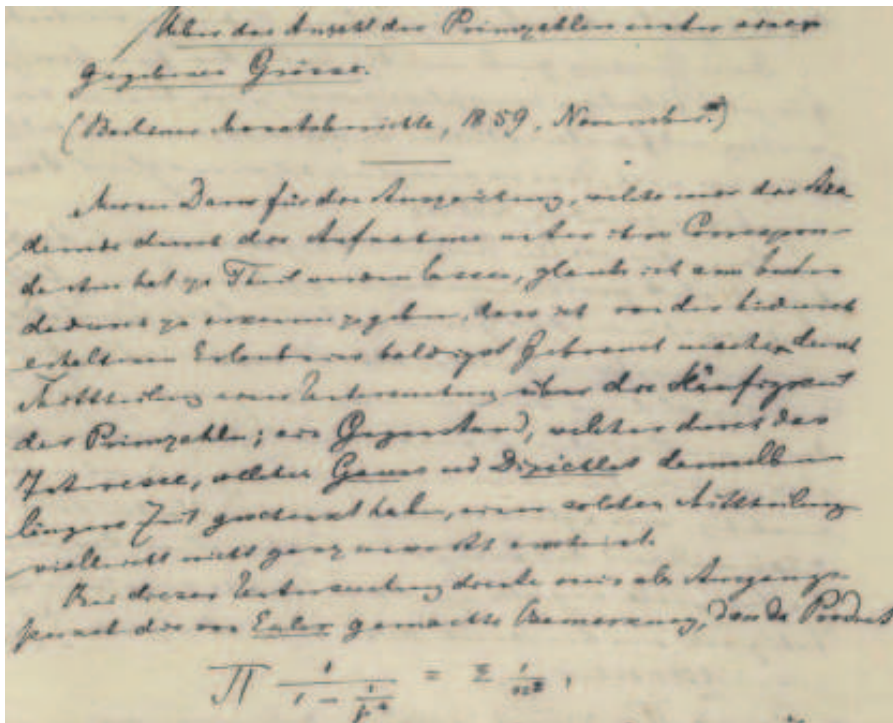 Ueber die Anzahl der Primzahlen unter einer
gegebenen Grösse.
(Berliner Monatsberichte, 1859, November.)
Meinen Dank für die Auszeichnung, welche mir die Aka
demie durch die Aufnahme unter ihre Correspon-
denten hat zu Theil werden lassen, glaube ich am besten
dadurch zu erkennen zu geben, dass ich von der hiedurch
erhaltenen Erlaubniss baldigst Gebrauch mache durch
Mittheilung einer Untersuchung über die Häufigkeit
der Primzahlen; ein Gegenstand, welcher durch das
Interesse, welches Gauss und Dirichlet demselben
längere Zeit geschenkt haben, einer solchen Mittheilung
vielleicht nicht ganz unwerth erscheint.
Bei dieser Untersuchung diente mir als Ausgangs-
punkt die von Euler gemachte Bemerkung, dass das Product
∏ 1/(1 − 1/p^s) = Σ 1/n^s,